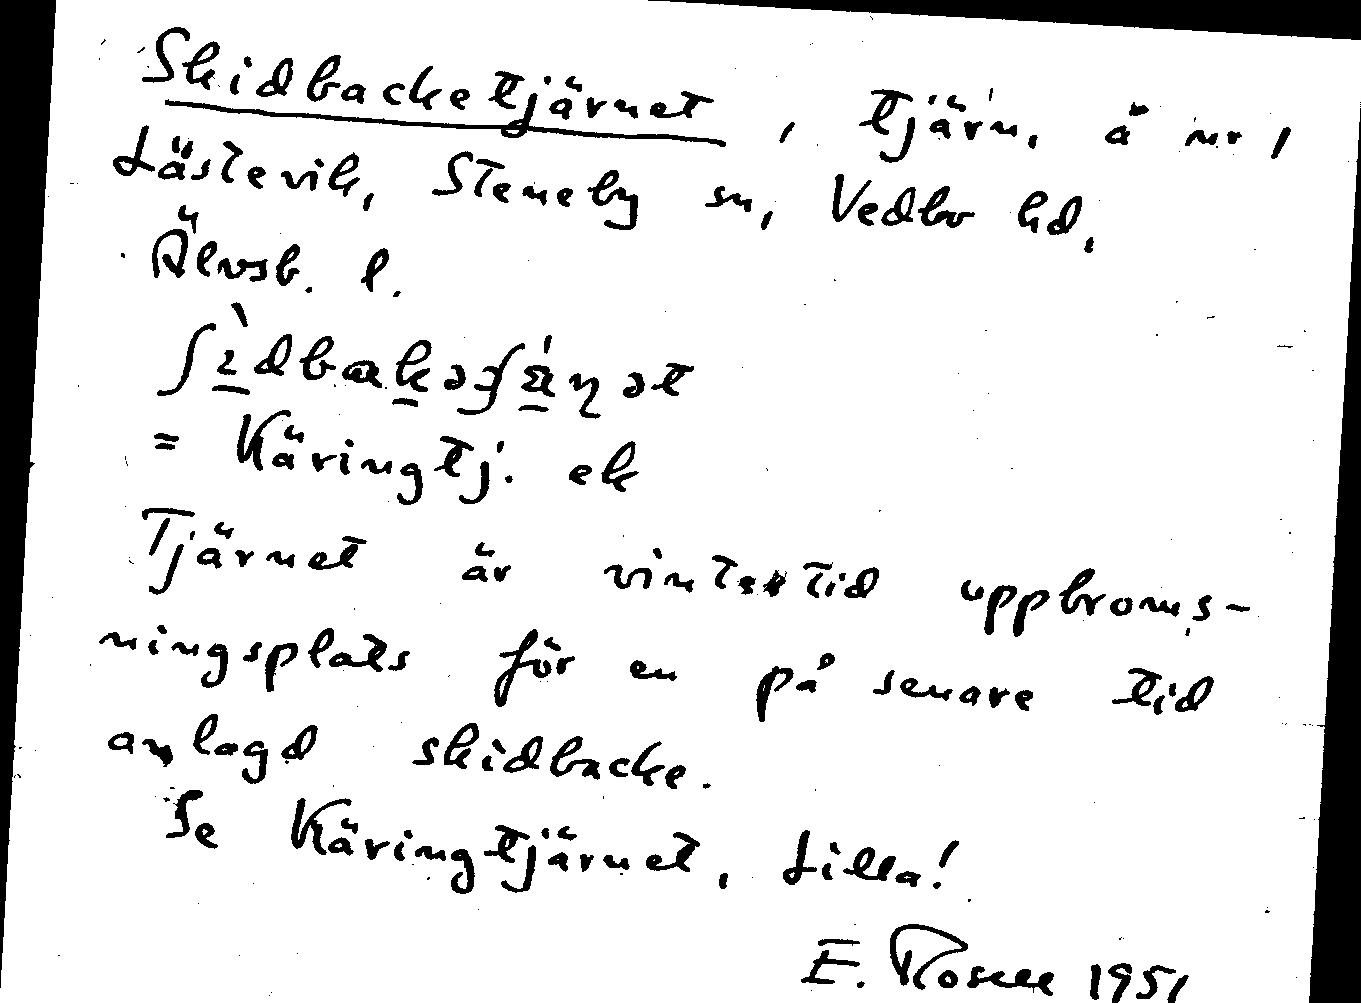 Skidbacketjärnet, tjärn, å nr 1
Lästevik, Steneby sn, Vedbo hd,
Älvsb. l.
= Käringtj. ek
Tjärnet är vintertid uppbroms-
ningsplats för en på senare tid
anlagd skidbacke.
Se Käringtjärnet, Lilla!
E. Rosell 1951